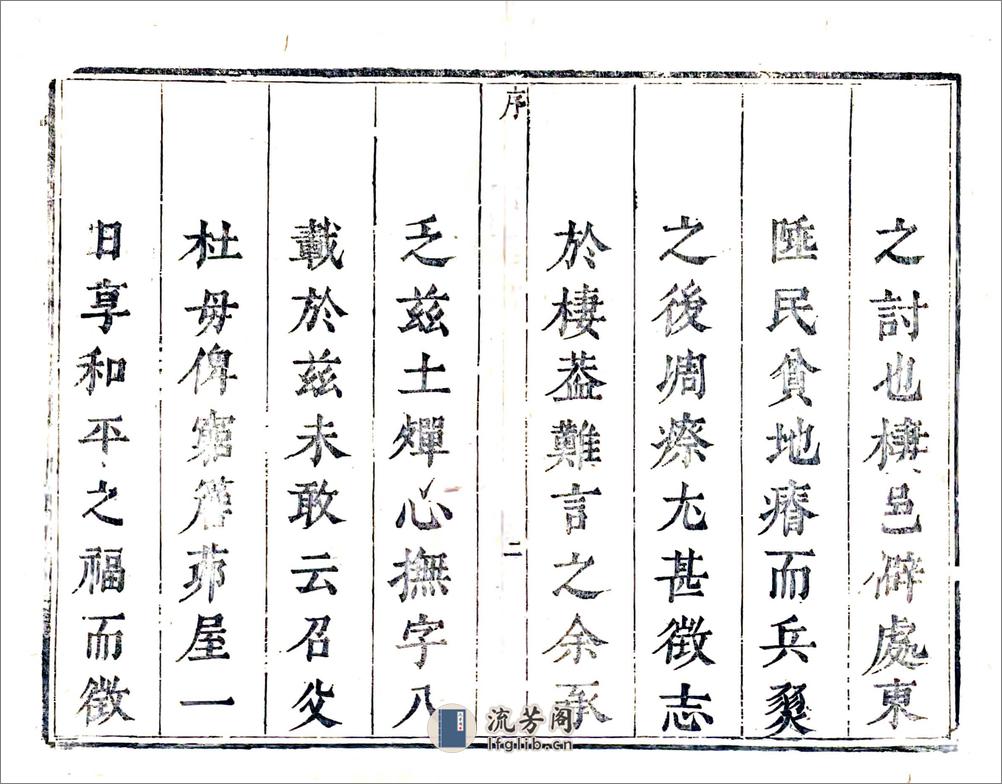 之討也棲邑僻處東
陲民貧地瘠而兵燹
之後凋瘵尤甚徵志
於棲葢難言之余承
序
二
乏茲土殫心撫字八
載於茲未敢云召父
杜母俾窮簷蔀屋一
日享和平之福而徵
流芳阁
lfglib.cn